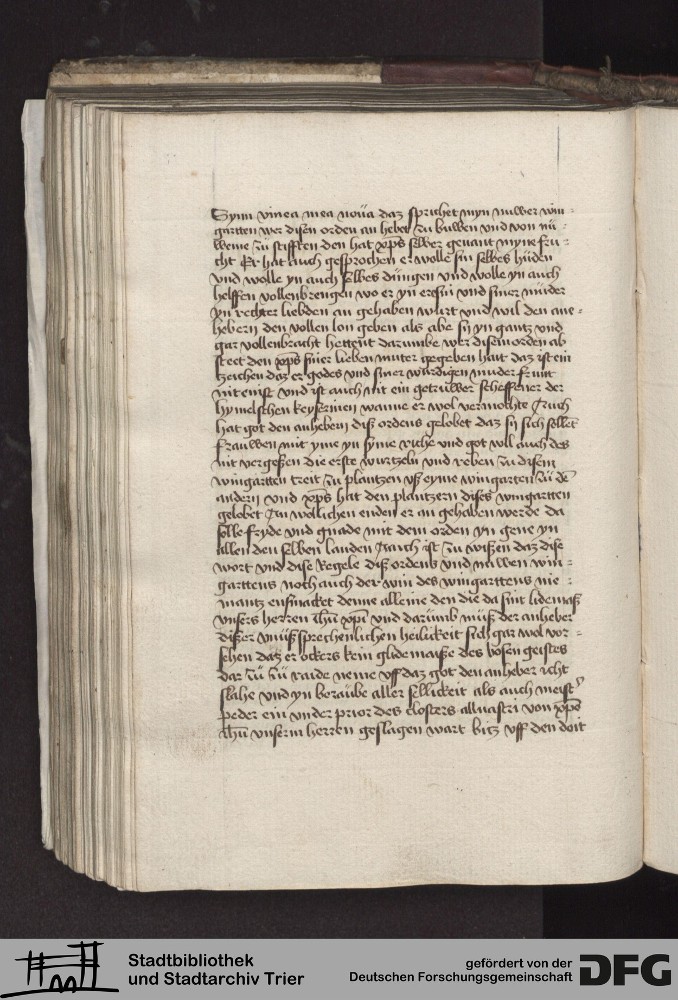 Synn vinea mea noua daz sprichet myn nuwer win-
gartten wer disen orden an hebet zu buwen und von nü-
weme zu stifften den hat xp̄s selber genant myne fru-
cht Er hat auch gesprochen er wolle sin selbes hüden
und wolle yn auch selbes düngen und wolle yn auch
helffen vollenbrengen wo er yn ere sin und siner müder
yn rechter liebden an gehaben wurt und wil den ane-
hebern den vollen lon geben als abe sy yn gantz und
gar vollenbracht hettent darumbe wer disem orden ab
steet den xp̄s siner lieben muter gegeben hait daz ist ein
tzeichen daz er godes und siner wurdigen muder frunt
nit enist und ist auch nit ein getruwer scheffener der
hymelschen keyserinen wanne er wol vermochte Auch
hat got den anhebern diß ordens gelobet daz sy sich sellet
frauwen mit yme yn syme riche und got wil auch des
nit vergeßen die erste wurtzeln und reben zu disem
wingartten treit zu plantzen uß eyme wingarten zu dē
andern und xp̄s hat den plantzern dises wingartten
gelobet In wollichen enden er an gehaben werde da
solle fryde und gnade mit dem orden yn gene yn
allen den selben landen Auch ist zu wißen daz dise
wort und dise Regele diß ordens und nuwen win-
garttens noch auch der win des wingarttens nie-
mantz ensmacket denne alleine den die da sint lidemaß
unsers herren ihū xp̄i und darümb müß der anheber
dißer unußsprechenlichen heilickeit sich gar wol vor-
sehen daz er ockers kein glidemaiße des bosen geistes
dar zü zü raide neme uff daz got den anheber icht
slahe und yn beraube aller sellickeit als auch meist
peder ein under prior des closters alluastri von xp̄o
ihū unserm herren geslagen wart bitz uff den doit
Stadtbibliothek
und Stadtarchiv Trier
gefördert von der
Deutschen Forschungsgemeinschaft
DFG